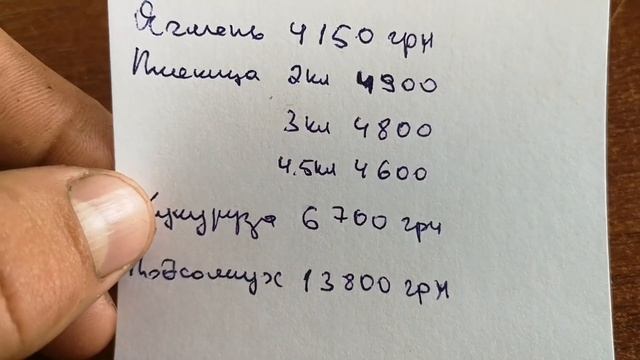 Ячмень 4150 грн
Пшеница 2кл 4900
3кл 4800
4.5кл 4600
Кукуруза 6700 грн
Подсолнух 13800 грн